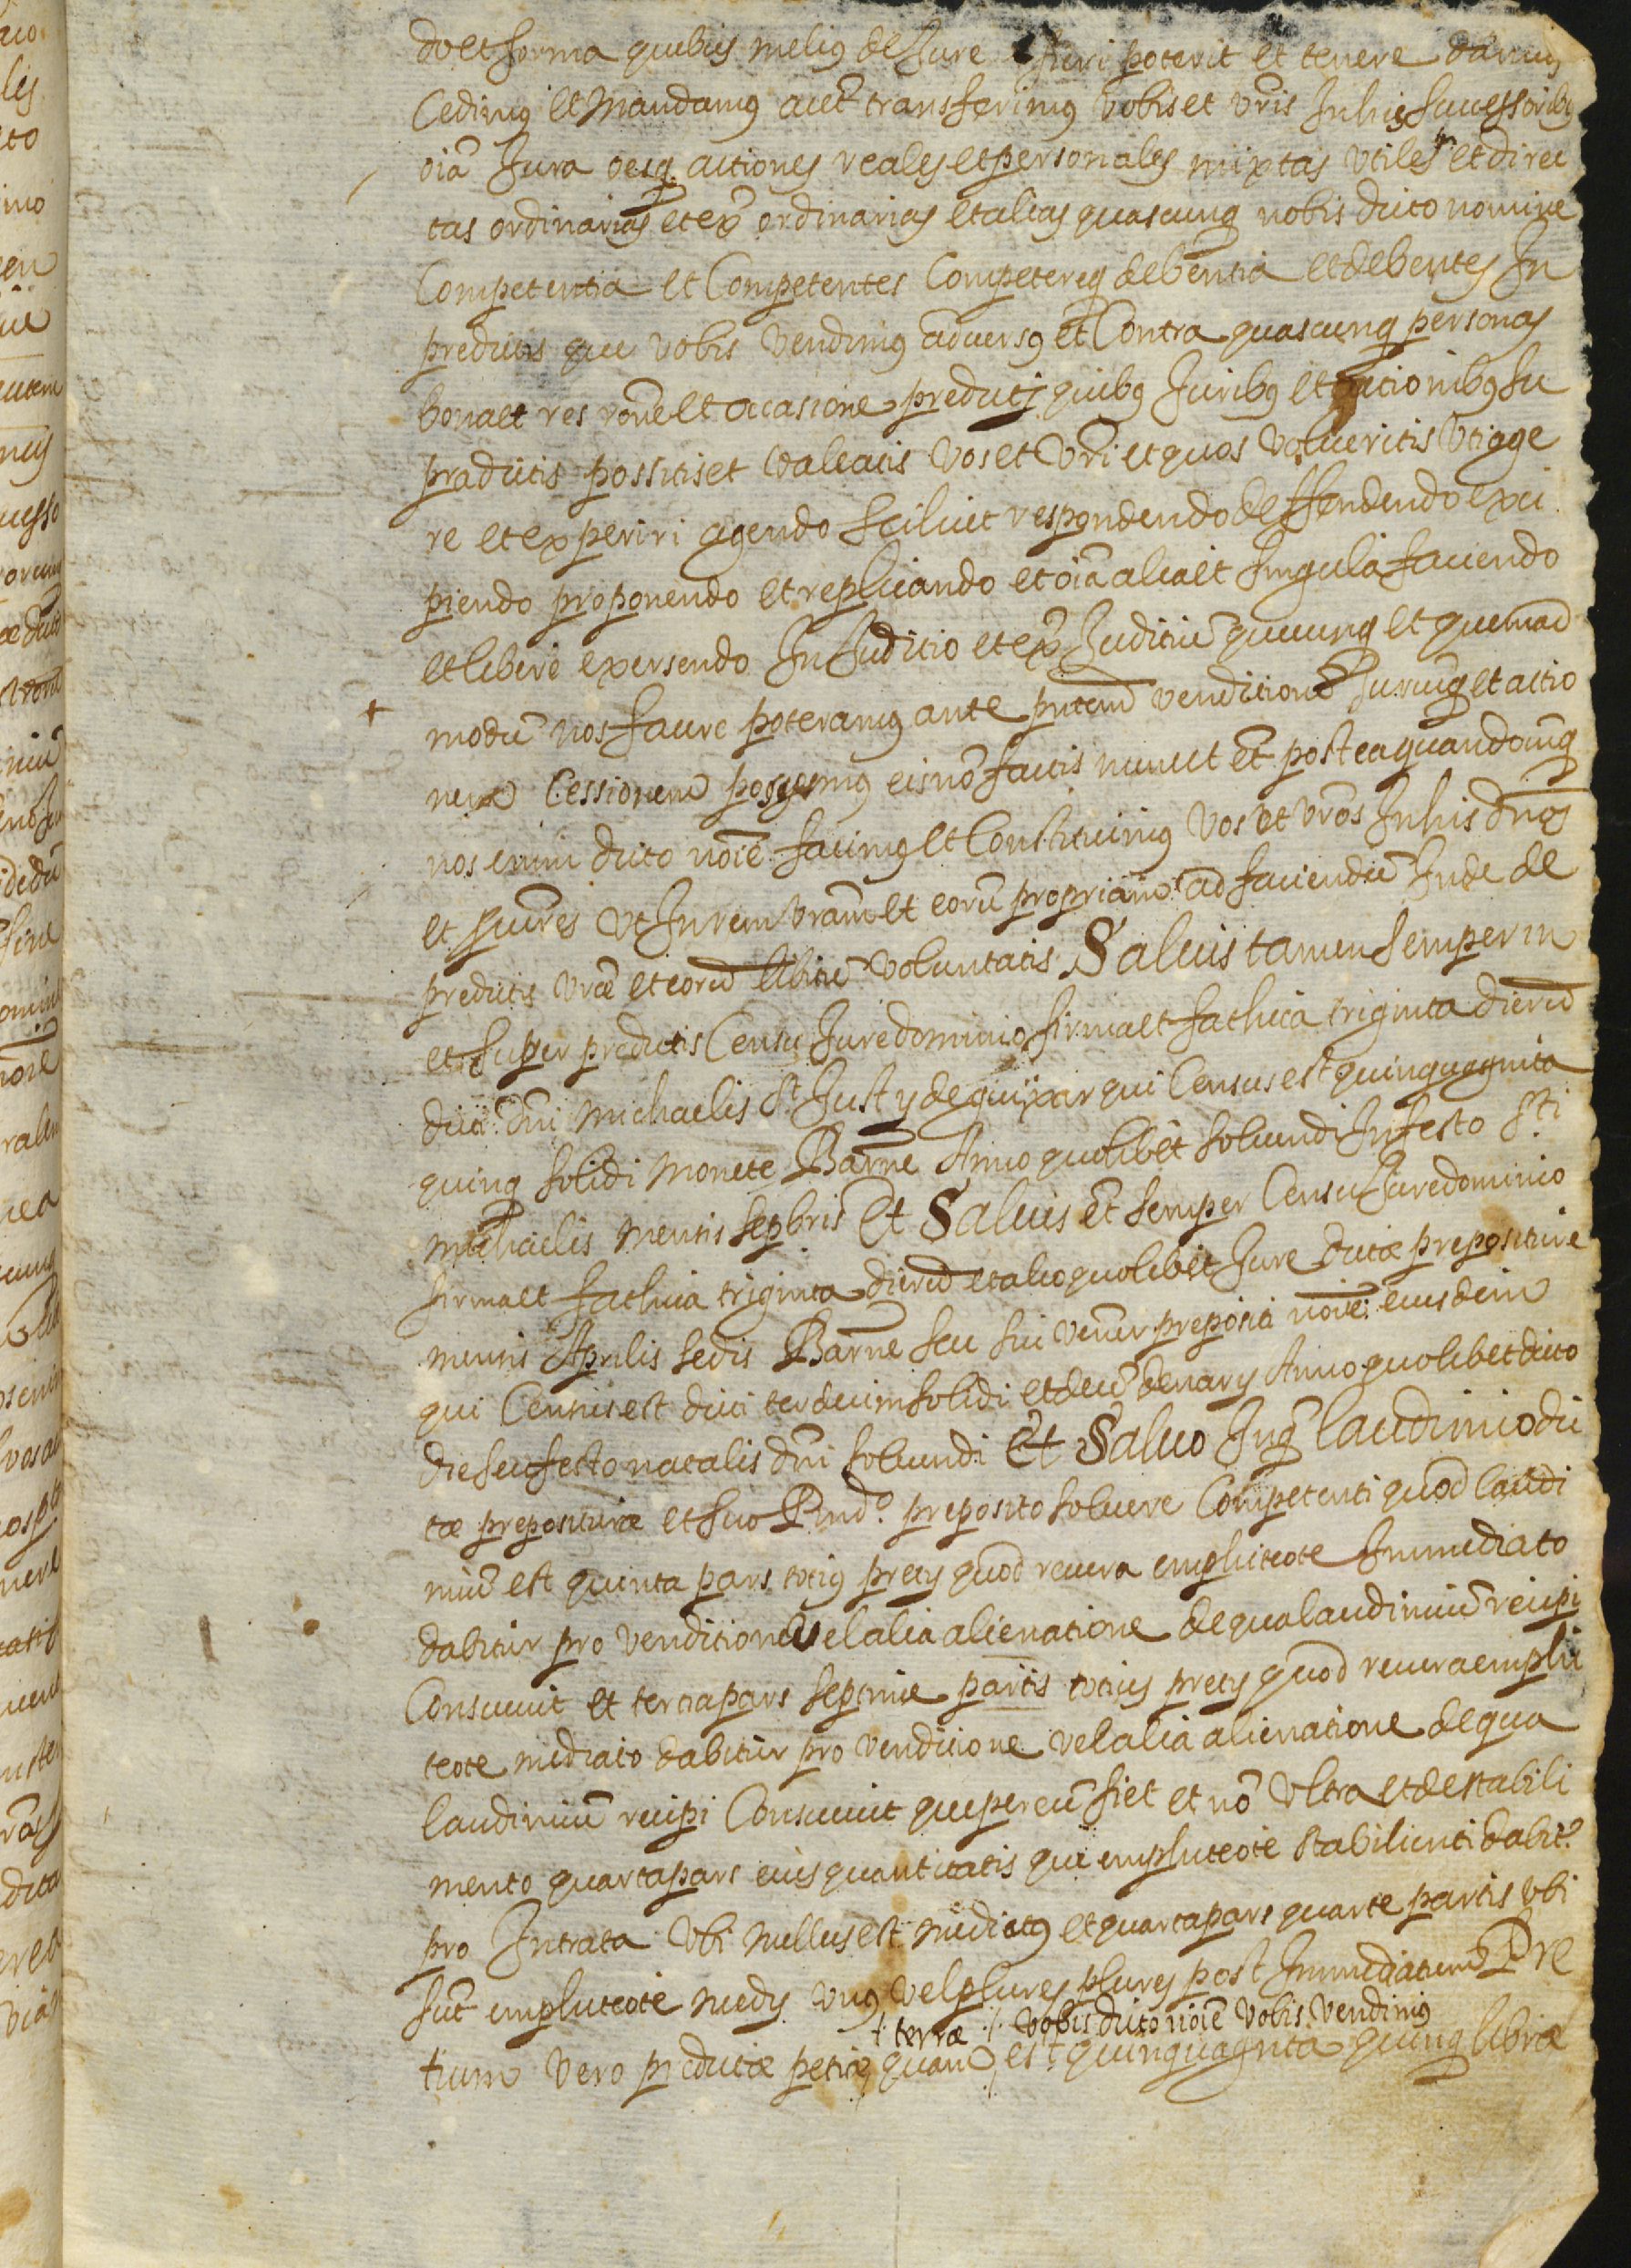 do et forma quibus meliꝰ de Jure fieri poterit et tenere damus
Cedimꝰ et Mandamꝰ acet̄ transferimꝰ vobis et vr̄is In his successoribꝰ
oīa Jura oesq. actiones reales et personales mixtas vtiles et direc
tas ordinarias et ex̄ ordinarias et alias quascunq nobis dicto nomine
Competentia et Competentes Competereq debentia et debentes In
predictis que vobis vendimꝰ aduersꝰ et Contra quascunq personas
bona et res rōne et occasione predictis quibꝰ Juribꝰ et actionibꝰ su
pradictis possitis et valeatis vos et vr̄i et quos volueritis vti age
re et experiri agendo scilicet respondendo deffendendo exci
piendo proponendo et replicando et oīa alia et singula faciendo
et libere exersendo In Juditio et ex̄ Juditiū quecunq et quemad
modū nos facere poteramꝰ ante pn̄tem venditionē Juriuꝫ et actio
nem Cessionem possemꝰ eis nō factis nunc et et̄ postea quandocūq
nos enim dicto nōie facimꝰ et Constituimꝰ vos et vr̄os In his dn̄os
et pcūres vt In rem vr̄am et eorū propriam ad faciendū Inde de
predictis vr̄æ et eorū libitū voluntatis Saluis tamen semper in
et super predictis Censu Jure dominio firma et fathica triginta dierū
dicti dn̄i Michaelis St Just y de guixar qui Census est quinquaginta
quinq solidi monete Barn̄e Anno quolibet soluendi In festo Sti
Michaelis mensis sepbris Et Saluis et̄ semper Censu Jure dominio
firma et fathica triginta dierū et alio quolibet Jure dictæ prepositure
mensis Aprilis sedis Barn̄e seu sui vener prepositi nōie eiusdem
qui Census est dicti terdecim solidi et decē denary Anno quolibet dicto
die seu festo natalis dn̄i soluendi Et Saluo In quo laudimio dic
tæ prepositure et suo Rnd.º preposito soluere Competenti quod laudi
miū est quinta pars totiꝰ precy quod reuera emphiteote Immediato
dabitur pro venditione vel alia alienatione de qua laudimiū recipi
Consueuit et tertia pars septime partis totius precy quod reuera emphi
teote mediato dabitur pro venditione vel alia alienatione de qua
laudimiū recipi Consueuit que per eū fiet et nō vltra et de stabili
mento quarta pars eius quantitatis que emphiteote stabilienti dabit.
pro Intrata vbi nullus est mediatꝰ et quarta pars quarte partis vbi
sūt emphiteote medy vnꝰ vel plures plures post Immediatum Pre
⁒ terræ ⁒ vobis dicto nōie vobis vendimꝰ
tium vero predictæ petiæ quam est quinquaginta quinq libræ